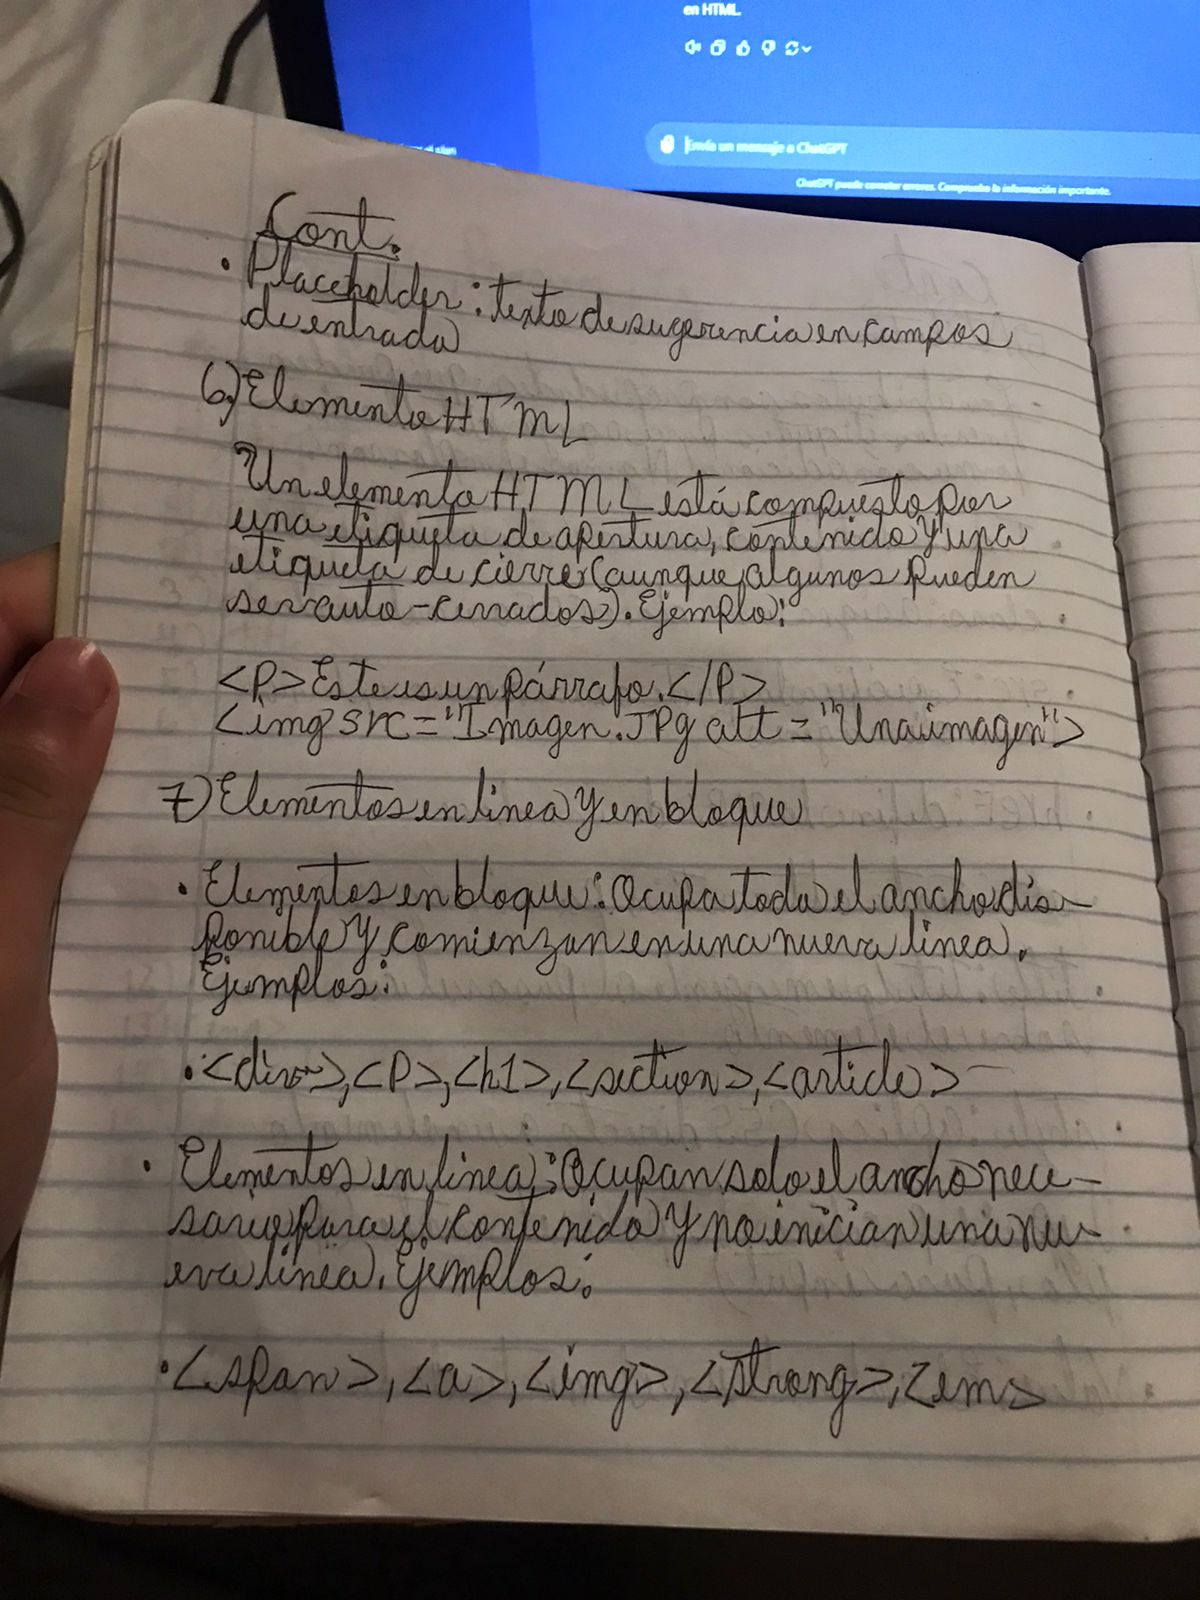 en HTML.
Envía un mensaje a ChatGPT
ChatGPT puede cometer errores. Comprueba la información importante.
Cont.
• Placeholder: texto de sugerencia en campos
de entrada
6) Elemento HTML
Un elemento HTML está compuesto por
una etiqueta de apertura, contenido y una
etiqueta de cierre (aunque algunos pueden
ser auto-cerrados). Ejemplo:
<P> Este es un párrafo. </P>
<img src="Imagen.JPg alt="Una imagen">
7) Elementos en linea y en bloque
• Elementos en bloque: Ocupa todo el ancho dis-
ponible y comienzan en una nueva linea.
Ejemplos:
• <div>, <P>, <h1>, <section>, <article>
• Elementos en linea: Ocupan solo el ancho nece-
sario para el contenido y no inician una nu-
eva línea. Ejemplos:
• <span>, <a>, <img>, <strong>, <em>